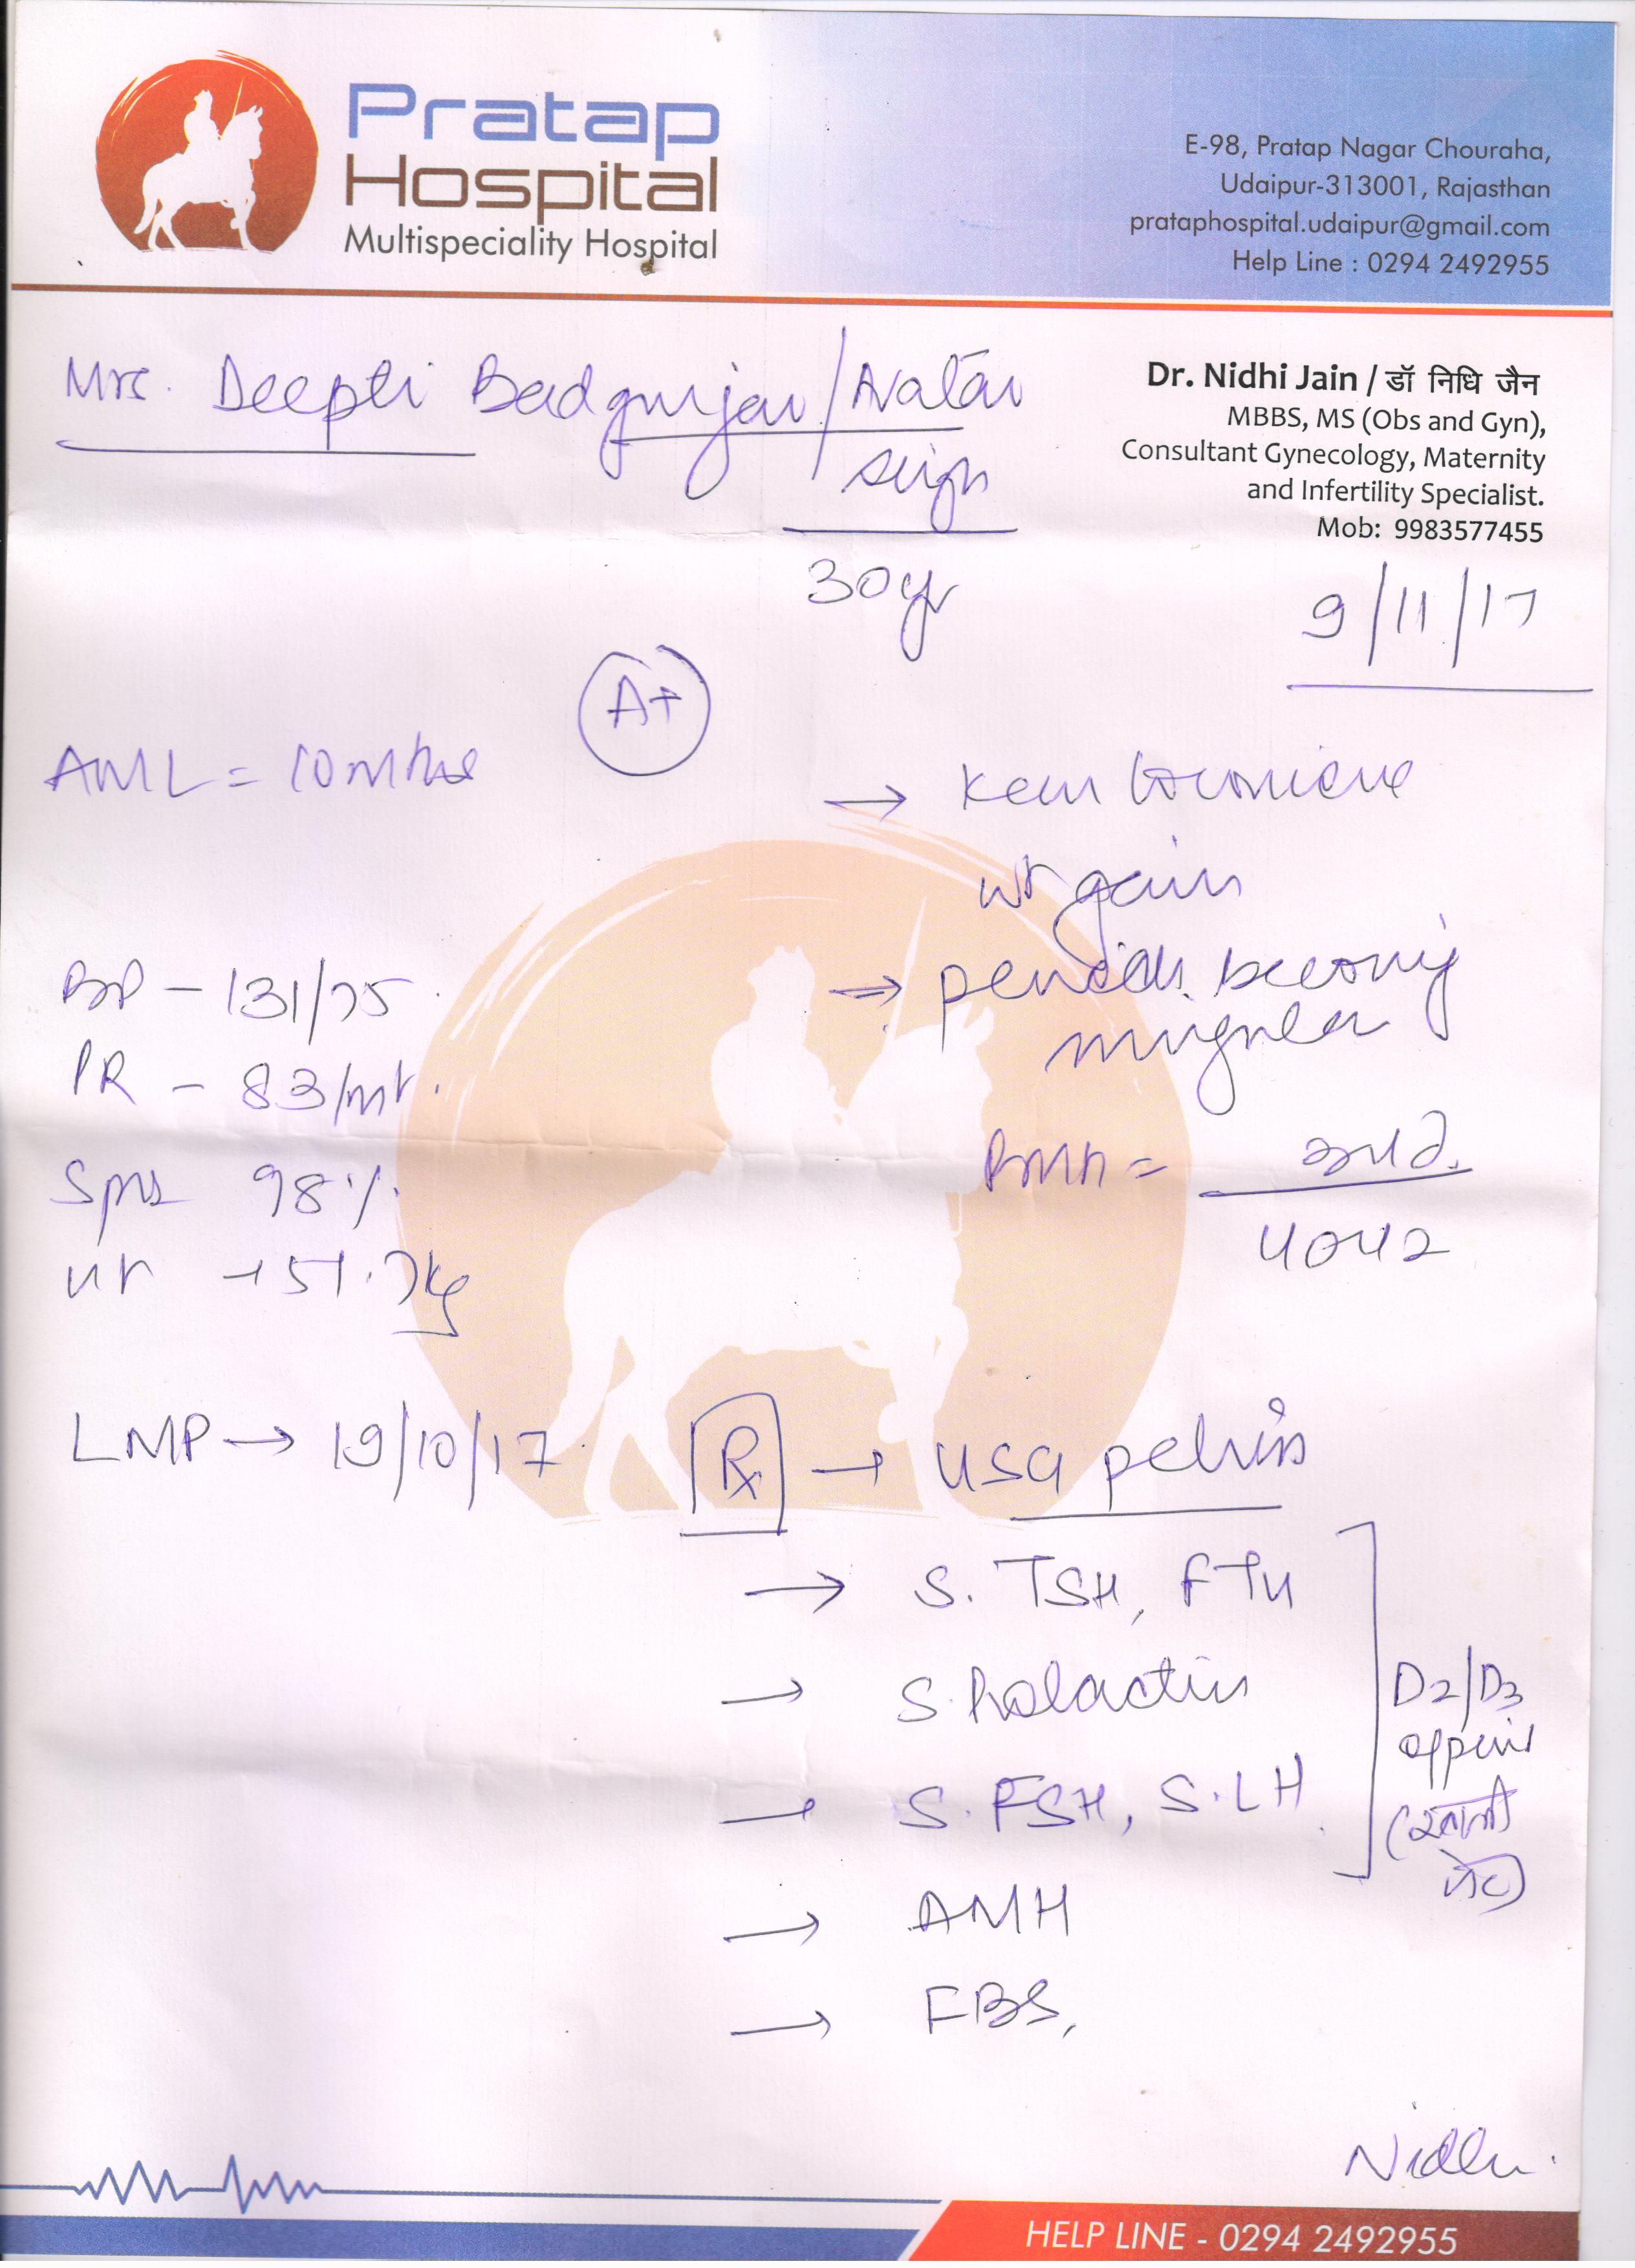 Pratap
Hospital
Multispeciality Hospital
E-98, Pratap Nagar Chouraha,
Udaipur-313001, Rajasthan
prataphospital.udaipur@gmail.com
Help Line : 0294 2492955
Mrs. Deepti Badgurjar/Avatar
Dr. Nidhi Jain / डॉ निधि जैन
MBBS, MS (Obs and Gyn),
Consultant Gynecology, Maternity
and Infertility Specialist.
Mob: 9983577455
30yr
9/11/17
A+
AML = 10 mths
→ Keen to conceive
wt gain
BP - 131/75
→ periods becoming
irregular
PR - 83/mt.
98%
wt → 51.7kg
LMP → 19/10/17
Rx → USG pelvis
→ S. TSH, FT4
→ S. Prolactin
D2/D3
→ S. FSH, S. LH
→ AMH
→ FBS,
Nidhi
HELP LINE - 0294 2492955